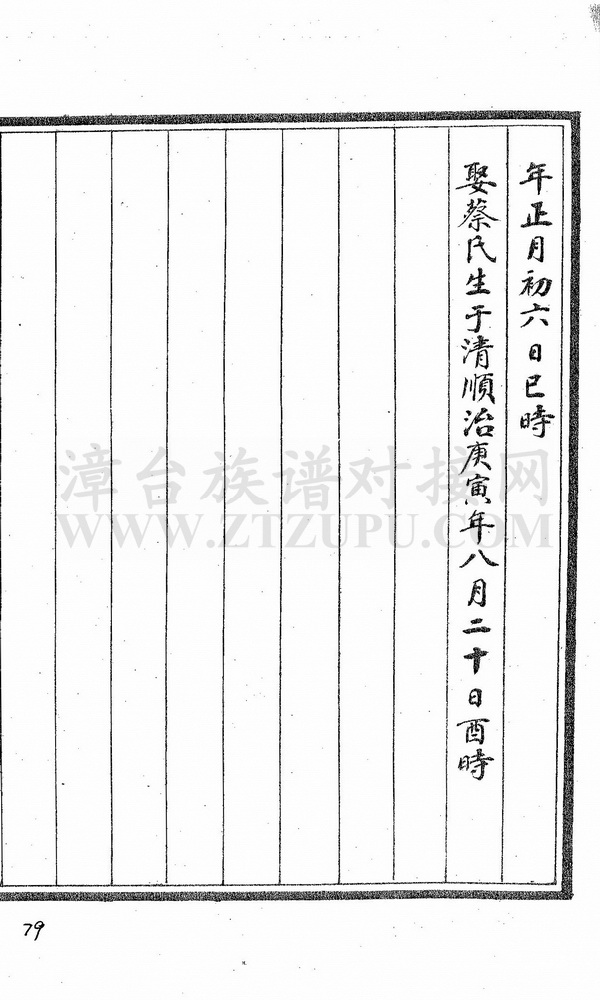 年正月初六日巳時
娶蔡氏生于清順治庚寅年八月二十日酉時
漳台族谱对接网
WWW.ZTZUPU.COM
79